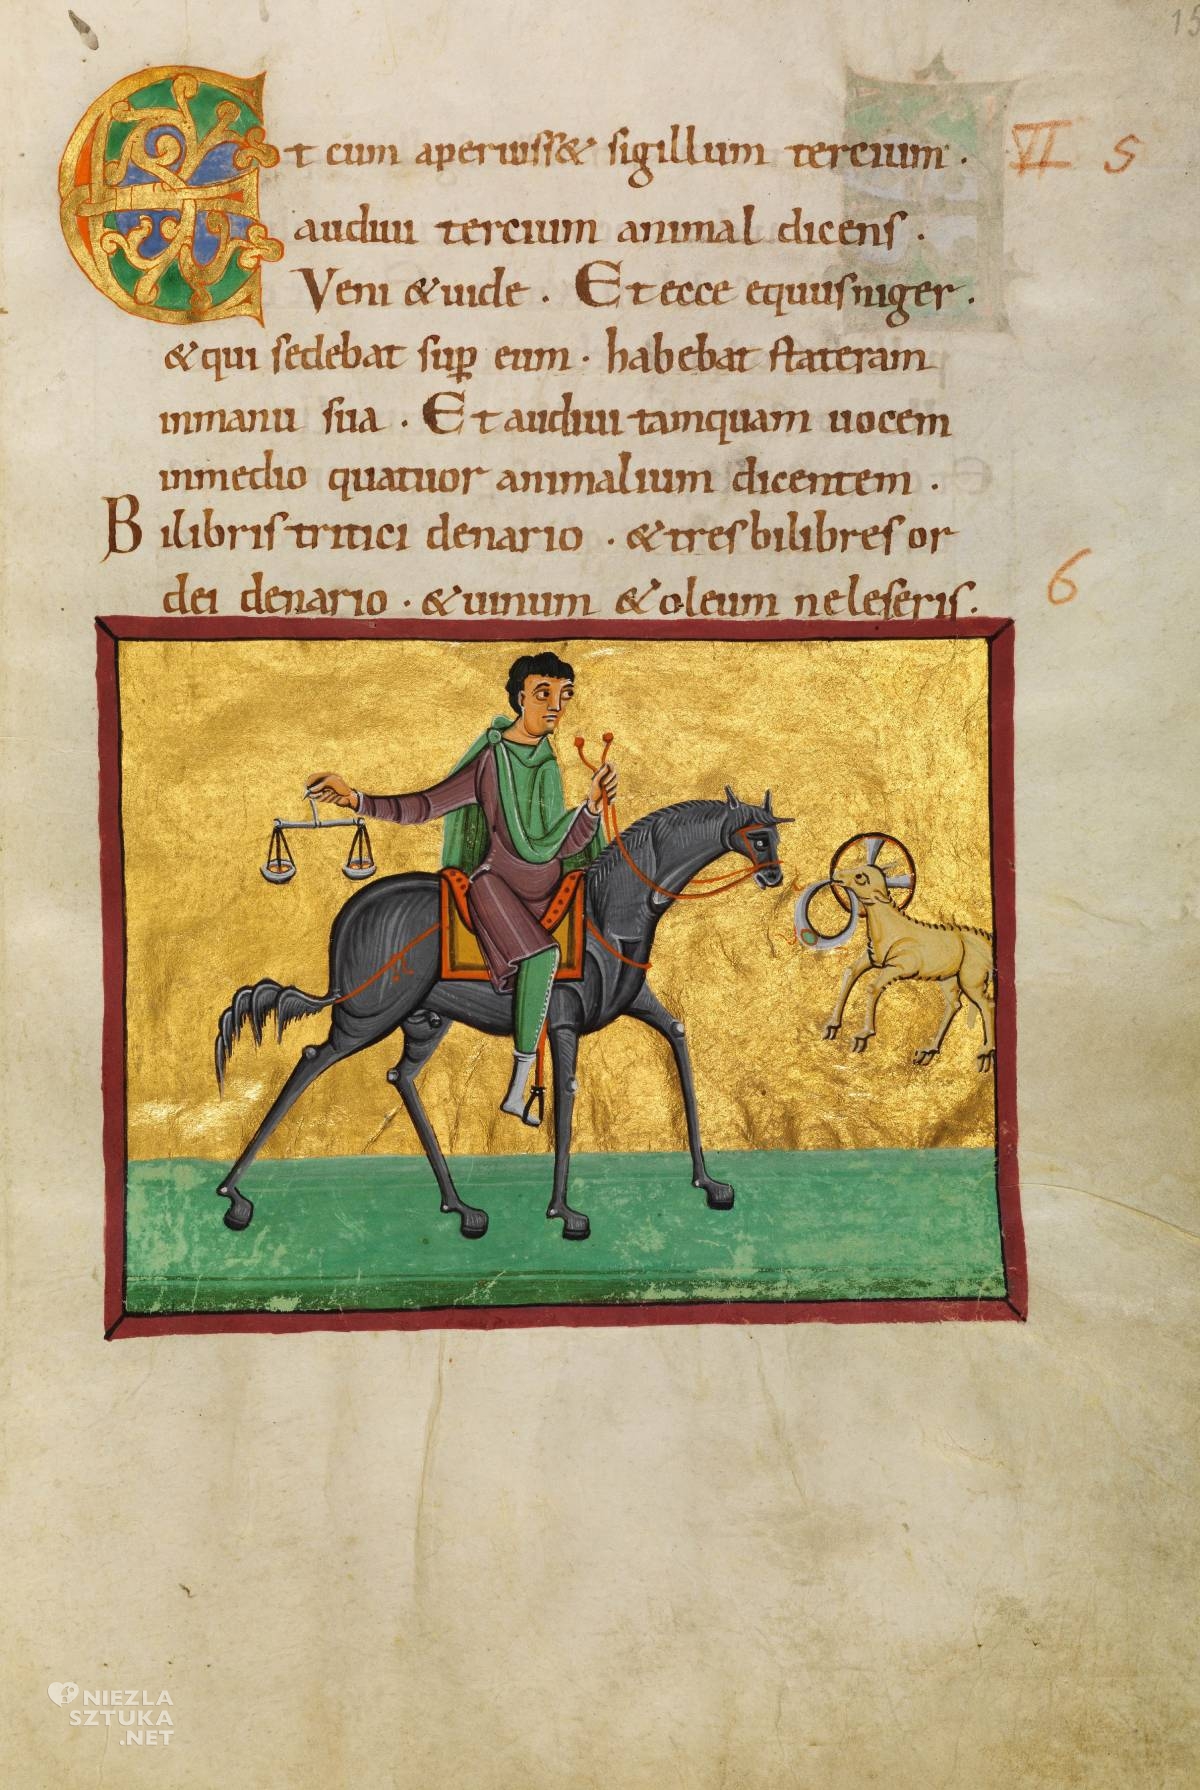 15
Et cum aperuiss& sigillum tercium · VI 5
audiui tercium animal dicens ·
Veni & uide · Et ecce equus niger ·
& qui sedebat sup eum · habebat stateram
inmanu sua · Et audiui tamquam uocem
inmedio quatuor animalium dicentem ·
Bilibris tritici denario · & tres bilibres or
dei denario · & uinum & oleum ne leseris · 6
NIEZLA
SZTUKA
.NET